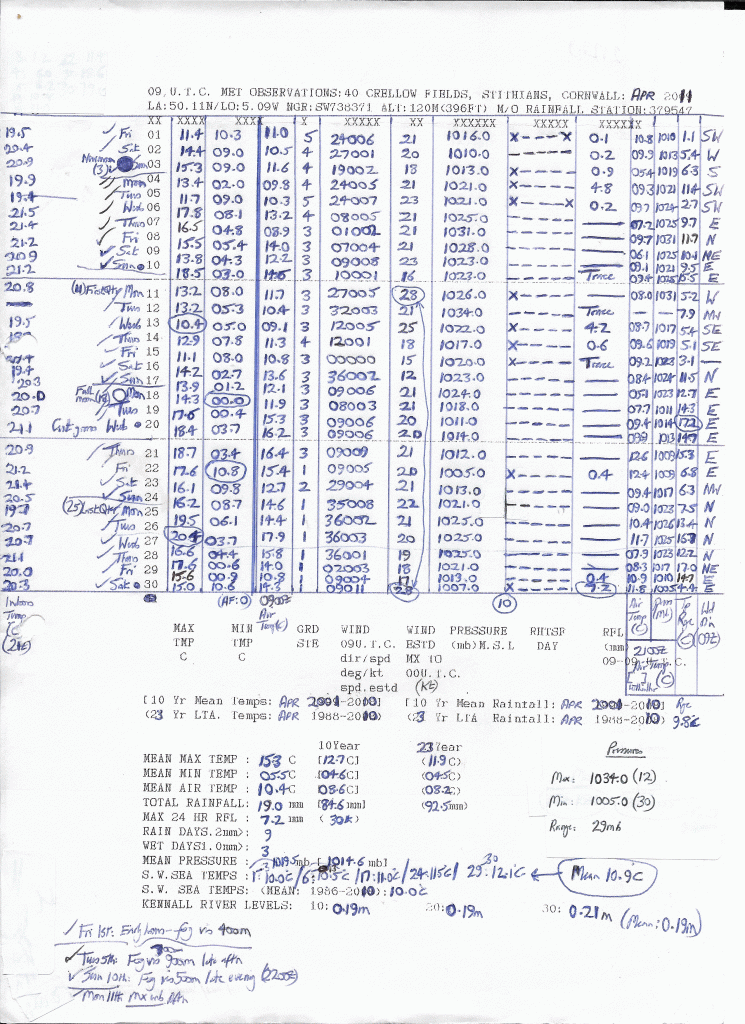 09 U.T.C. MET OBSERVATIONS:40 CRELLOW FIELDS, STITHIANS, CORNWALL: APR 2011
LA:50.11N/LO:5.09W NGR:SW738371 ALT:120M(396FT) M/O RAINFALL STATION:379547
XX XXXX XXXX X XXXXX XX XXXXX XXXXX XXXXXX
19.5 Fri 01 11.4 10.3 11.0 5 24006 21 1016.0 X-----X 0.1 10.8 1010 1.1 SW
20.4 Sat 02 14.4 09.0 10.5 4 27001 20 1010.0 ----- 0.2 09.9 1013 5.4 W
20.9 (3) Sun 03 15.3 09.0 11.6 4 19002 18 1013.0 X----- 0.9 05.4 1019 6.3 S
19.9 Mon 04 13.4 02.0 09.8 4 24005 21 1021.0 X----- 4.8 09.3 1021 11.4 SW
19.4 Tues 05 11.7 09.0 10.3 5 24007 23 1021.0 X----- 0.2 09.7 1024 2.7 SW
21.5 Wed 06 17.8 08.1 13.2 4 08005 21 1025.0 ----- E
21.4 Thurs 07 16.5 04.8 08.9 3 01002 21 1031.0 ----- 07.2 1025 9.7 E
21.2 Fri 08 15.5 05.4 14.0 3 07004 21 1028.0 ----- 09.7 1031 11.7 N
20.9 Sat 09 13.8 04.3 12.2 3 09008 23 1023.0 ----- 06.1 1025 10.1 NE
21.2 Sun 10 18.5 03.0 14.6 3 10001 16 1023.0 ----- Trace E
20.8 (11) First Qtr Mon 11 13.2 08.0 11.7 3 27005 28 1026.0 X----- 08.0 1031 5.2 W
Tues 12 13.2 05.3 10.4 3 32003 21 1034.0 ----- Trace — — 7.9
19.5 Wed 13 10.4 05.0 09.1 3 12005 25 1022.0 X----- 4.2 08.7 1017 5.4 SE
Thurs 14 12.9 07.8 11.3 4 12001 18 1017.0 X----- 0.6 09.6 1019 5.1 SE
Fri 15 11.1 08.0 10.8 3 00000 15 1020.0 X----- Trace 09.2 1023 3.1 —
19.4 Sat 16 14.2 02.7 13.6 3 36002 12 1023.0 ----- 08.4 1024 11.5 N
20.3 Sun 17 13.9 01.2 12.1 3 09006 21 1024.0 ----- E
20.0 Full moon (18) Mon 18 14.3 00.0 11.9 3 08003 21 1018.0 ----- 07.7 1011 14.3 E
20.7 Tues 19 17.6 00.4 15.3 3 09006 20 1011.0 ----- 09.4 1014 17.2 E
21.1 Wed 20 18.4 03.7 16.2 3 09006 20 1014.0 ----- 1013 14.7 E
20.9 Thurs 21 18.7 03.4 16.4 3 09009 21 1012.0 ----- 12.6 1009 15.3 E
21.2 Fri 22 17.6 10.8 15.4 1 09005 20 1005.0 X----- 0.4 12.4 1009 6.8 E
21.4 Sat 23 16.1 09.8 12.7 2 29004 21 1013.0 ----- 09.4 1017 6.3
20.5 Sun 24 16.2 08.7 14.6 1 35008 22 1021.0 ----- 09.0 1023 7.5 N
(25) Last Qtr Mon 25 19.5 06.1 14.4 1 36002 21 1025.0 ----- 10.4 1026 13.4 N
20.7 Tues 26 20.4 03.7 17.9 1 36003 20 1025.0 ----- 11.7 1025 16.7 N
20.7 Wed 27
21.1 Thurs 28 16.6 04.4 15.8 1 36001 19 1025.0 ----- 07.9 1023 12.2 N
20.0 Fri 29 17.6 00.6 14.0 1 02003 18 1021.0 ----- 08.3 1017 17.0 NE
20.3 Sat 30 15.6 00.9 10.8 1 09004 17 1013.0 ----- 0.4 10.9 1010 14.7 E
15.0 10.6 14.3 09011 28 1007.0 X----- 7.2 11.8 1005 4.4 E
Indoors Temp (C) (AF:0) 0900Z Air Temp(C) (10) Air Temp (C)
MAX MIN GRD WIND WIND PRESSURE RHTSF RFL
TMP TMP STE 09U.T.C. ESTD (mb)M.S.L DAY (mm)
C C dir/spd MX TO 09-09 U.T.C.
deg/kt 00U.T.C.
spd.estd (kt)
2100Z Air Temp (C)
[10 Yr Mean Temps: APR 2001-2010] [10 Yr Mean Rainfall: APR 2001-2010] Rge
(23 Yr LTA. Temps: APR 1988-2010) (23 Yr LTA Rainfall: APR 1988-2010) 9.8c
10Year 23Year Pressures
MEAN MAX TEMP : 15.3 C [12.7C] (11.9C)
MEAN MIN TEMP : 05.5C [04.6C] (04.5C) Max: 1034.0 (12)
MEAN AIR TEMP : 10.4C [08.6C] (08.2C)
TOTAL RAINFALL: 19.0 mm [84.6mm] (92.5mm) Min: 1005.0 (30)
MAX 24 HR RFL : 7.2 mm (30th)
RAIN DAYS.2mm>: 9 Range: 29mb
WET DAYS1.0mm>: 3
MEAN PRESSURE : 1019.5mb [1014.6 mb]
S.W.SEA TEMPS : 1:10.0c/6:10.5c/17:11.0c/24:11.5c/29:12.1c Mean 10.9c
S.W. SEA TEMPS: (MEAN: 1986-2010):10.0c
KENNALL RIVER LEVELS: 10: 0.19m 20: 0.19m 30: 0.21m (Mean: 0.19m)
Fri 1st: Early hours - fog vis 400m
Tues 5th: Fog vis 900m late aftn
Sun 10th: Fog vis 500m late evening (2200Z)
Mon 11th: